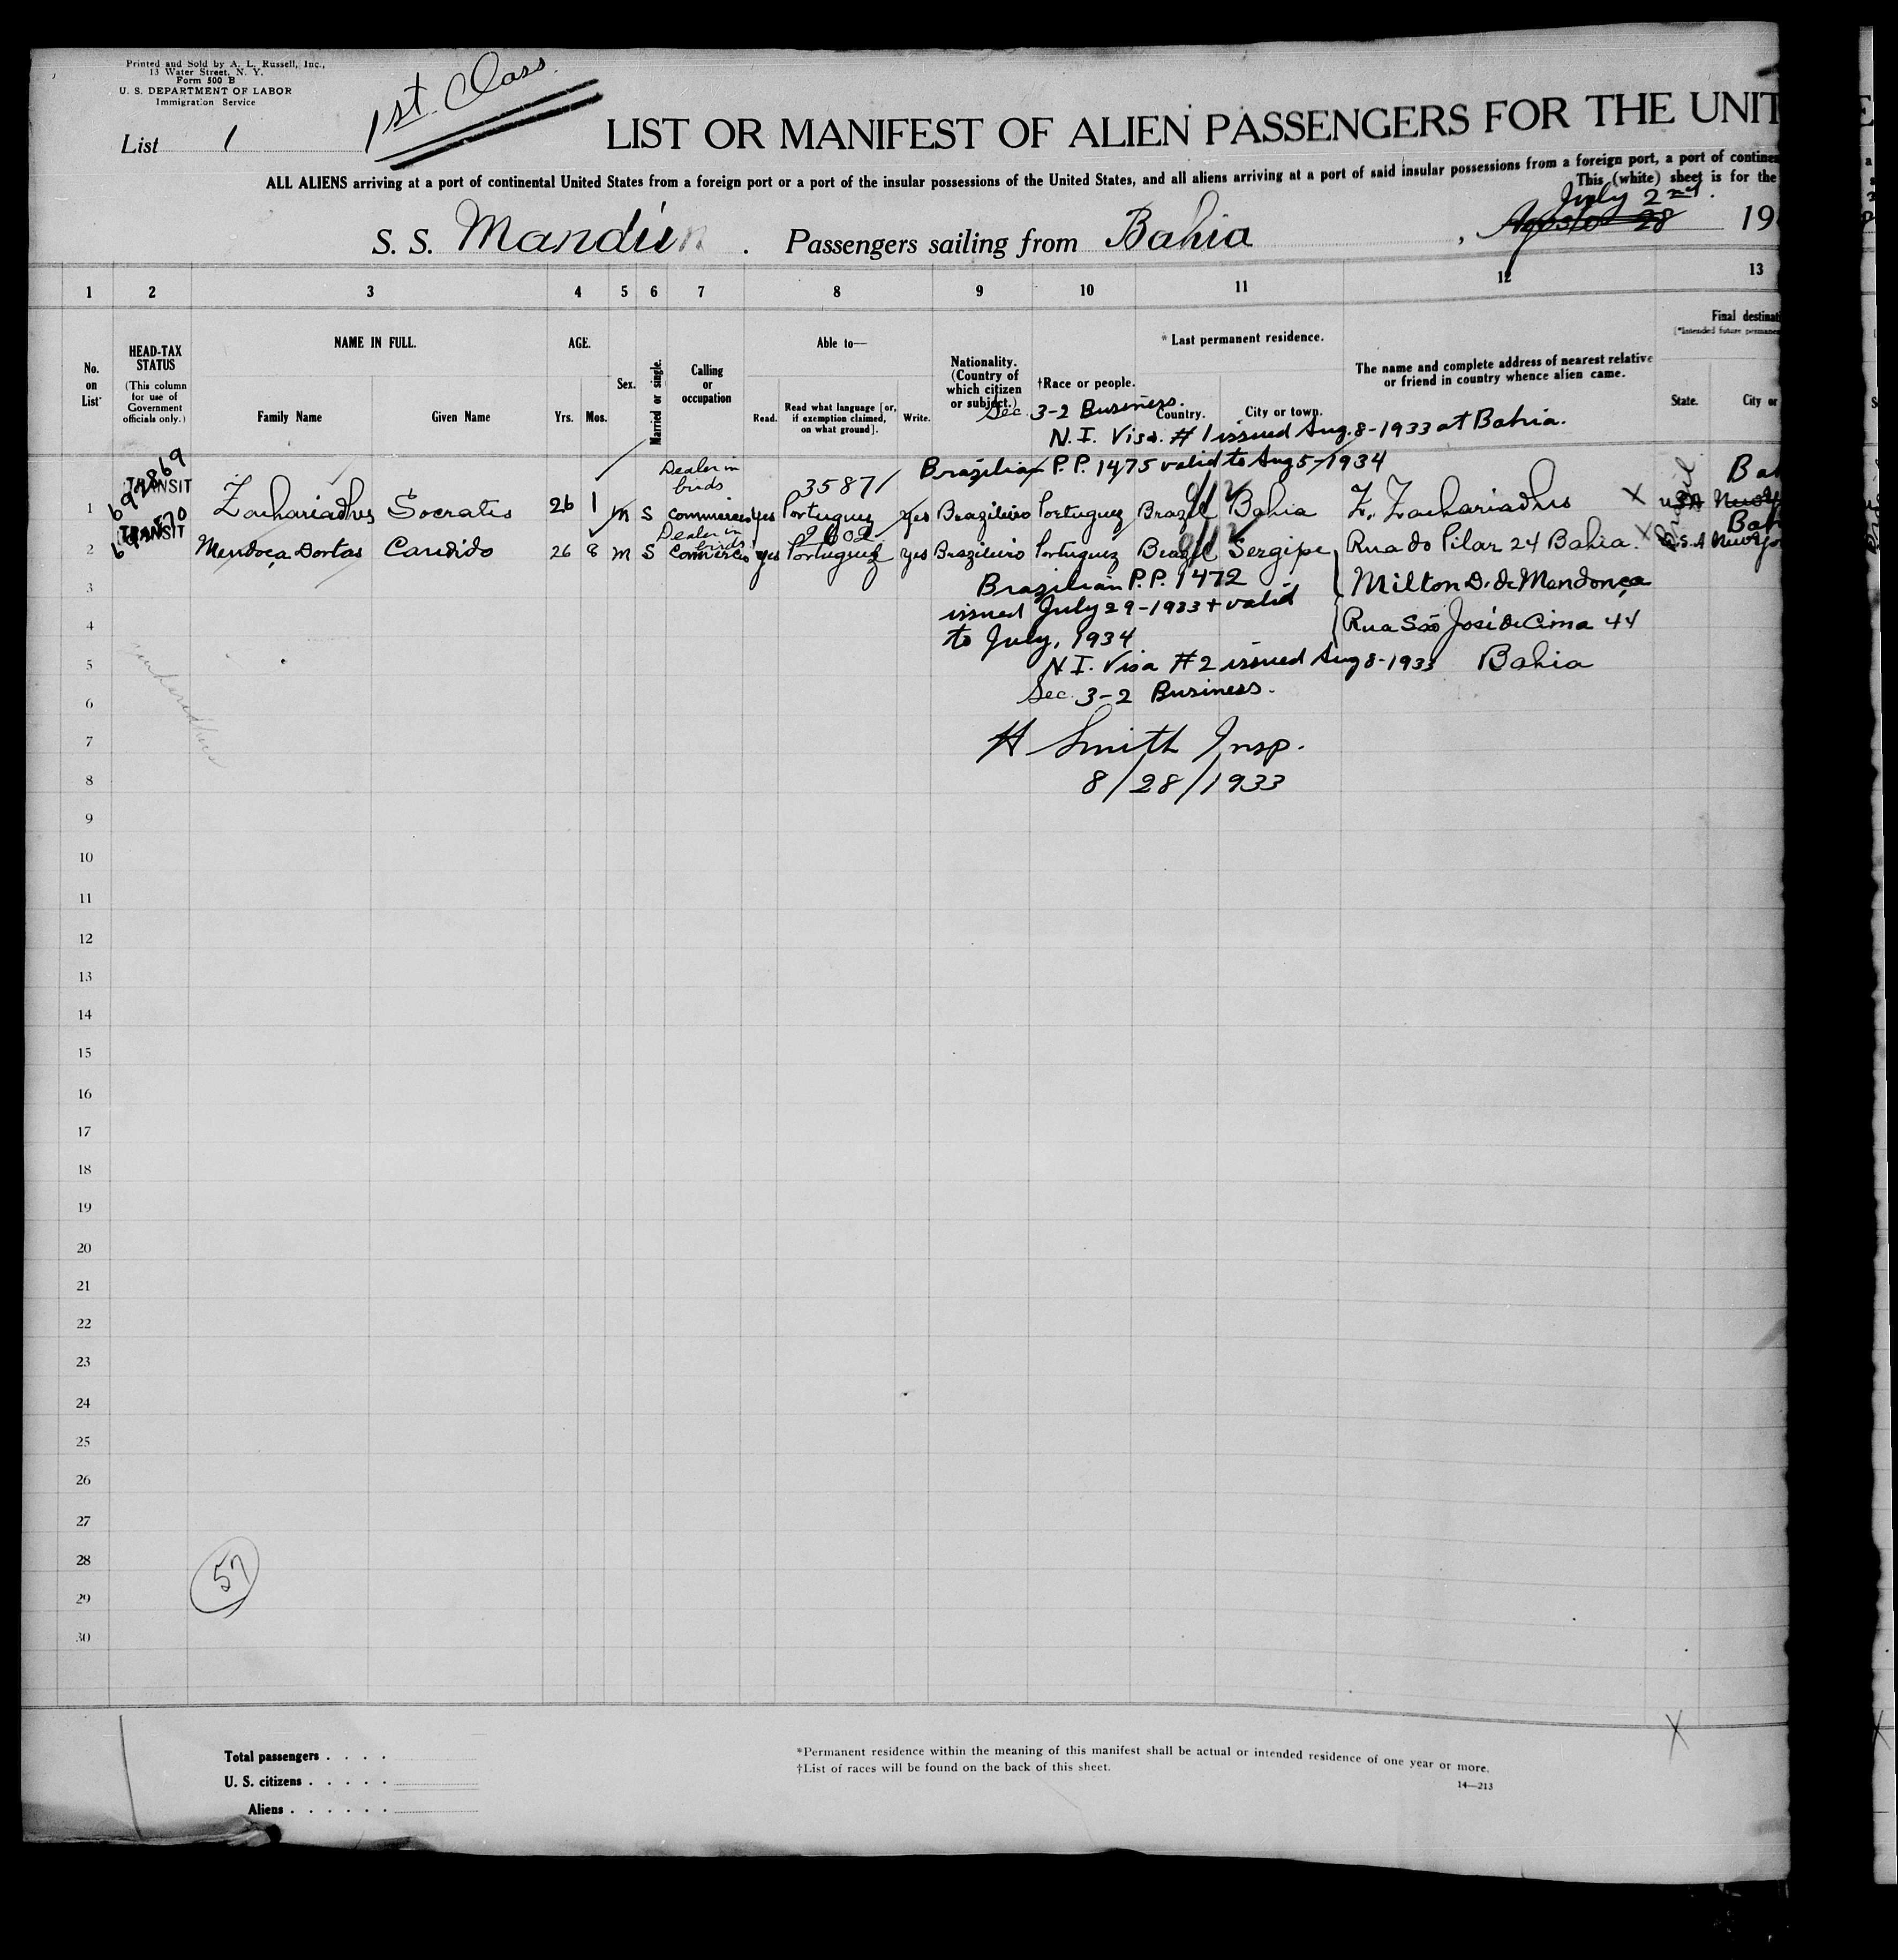 Printed and Sold by A. L. Russell, Inc.,
13 Water Street, N. Y.
Form 500 B
U. S. DEPARTMENT OF LABOR
Immigration Service
List 1
1st. Class
LIST OR MANIFEST OF ALIEN PASSENGERS FOR THE UNIT
ALL ALIENS arriving at a port of continental United States from a foreign port or a port of the insular possessions of the United States, and all aliens arriving at a port of said insular possessions from a foreign port, a port of contine
This (white) sheet is for the
July 2nd.
S. S. Mandú . Passengers sailing from Bahia , Agosto 28 19
1 2 3 4 5 6 7 8 9 10 11 12 13
No. on List
HEAD-TAX STATUS
(This column for use of Government officials only.)
NAME IN FULL.
Family Name Given Name
AGE.
Yrs. Mos.
Sex.
Married or single.
Calling or occupation
Able to—
Read. Read what language [or, if exemption claimed, on what ground]. Write.
Nationality. (Country of which citizen or subject.)
†Race or people.
* Last permanent residence.
Country. City or town.
The name and complete address of nearest relative or friend in country whence alien came.
Final destinati
[*Intended future permanen
State. City or
Sec. 3-2 Business.
N. I. Visa. # 1 issued Aug. 8-1933 at Bahia.
Brazilian P.P. 1475 valid to Aug 5-1934
Dealer in birds
35871
1 TRANSIT Zachariadhes Socratis 26 1 m S commercio yes Portuguez yes Brazileiro Portuguez Brazil Bahia Z. Zachariadhis X USA New Y
Dealer in birds
2 TRANSIT Mendoça Dortas Candido 26 8 m S Comercio yes Portuguez yes Brazileiro Portuguez Brazil Sergipe Rua do Pilar 24 Bahia. X U.S.A New Yo
3 Brazilian P.P. 1472 Milton D. de Mendonça
issued July 29-1933 + valid
4 to July, 1934 Rua São José de Cima 44
5 N. I. Visa # 2 issued Aug 8-1933 Bahia
6 Sec. 3-2 Business.
7 H Smith Insp.
8 8/28/1933
9
10
11
12
13
14
15
16
17
18
19
20
21
22
23
24
25
26
27
28
57
29
30
X
Total passengers . . . .
U. S. citizens . . . . .
Aliens . . . . . .
*Permanent residence within the meaning of this manifest shall be actual or intended residence of one year or more.
†List of races will be found on the back of this sheet.
14—213